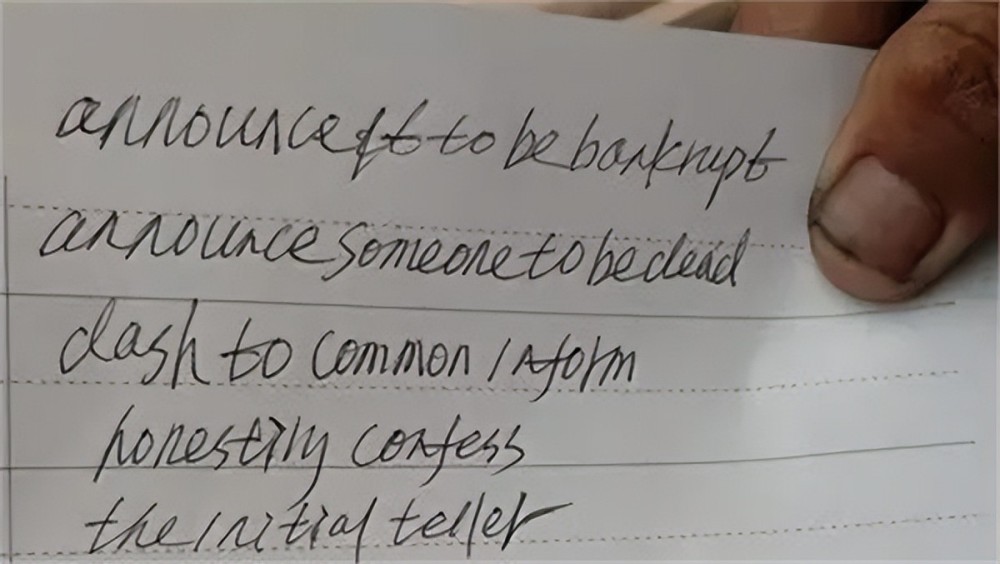 announce it to be bankrupt
announce someone to be dead
dash to common inform
honestily confess
the initial teller